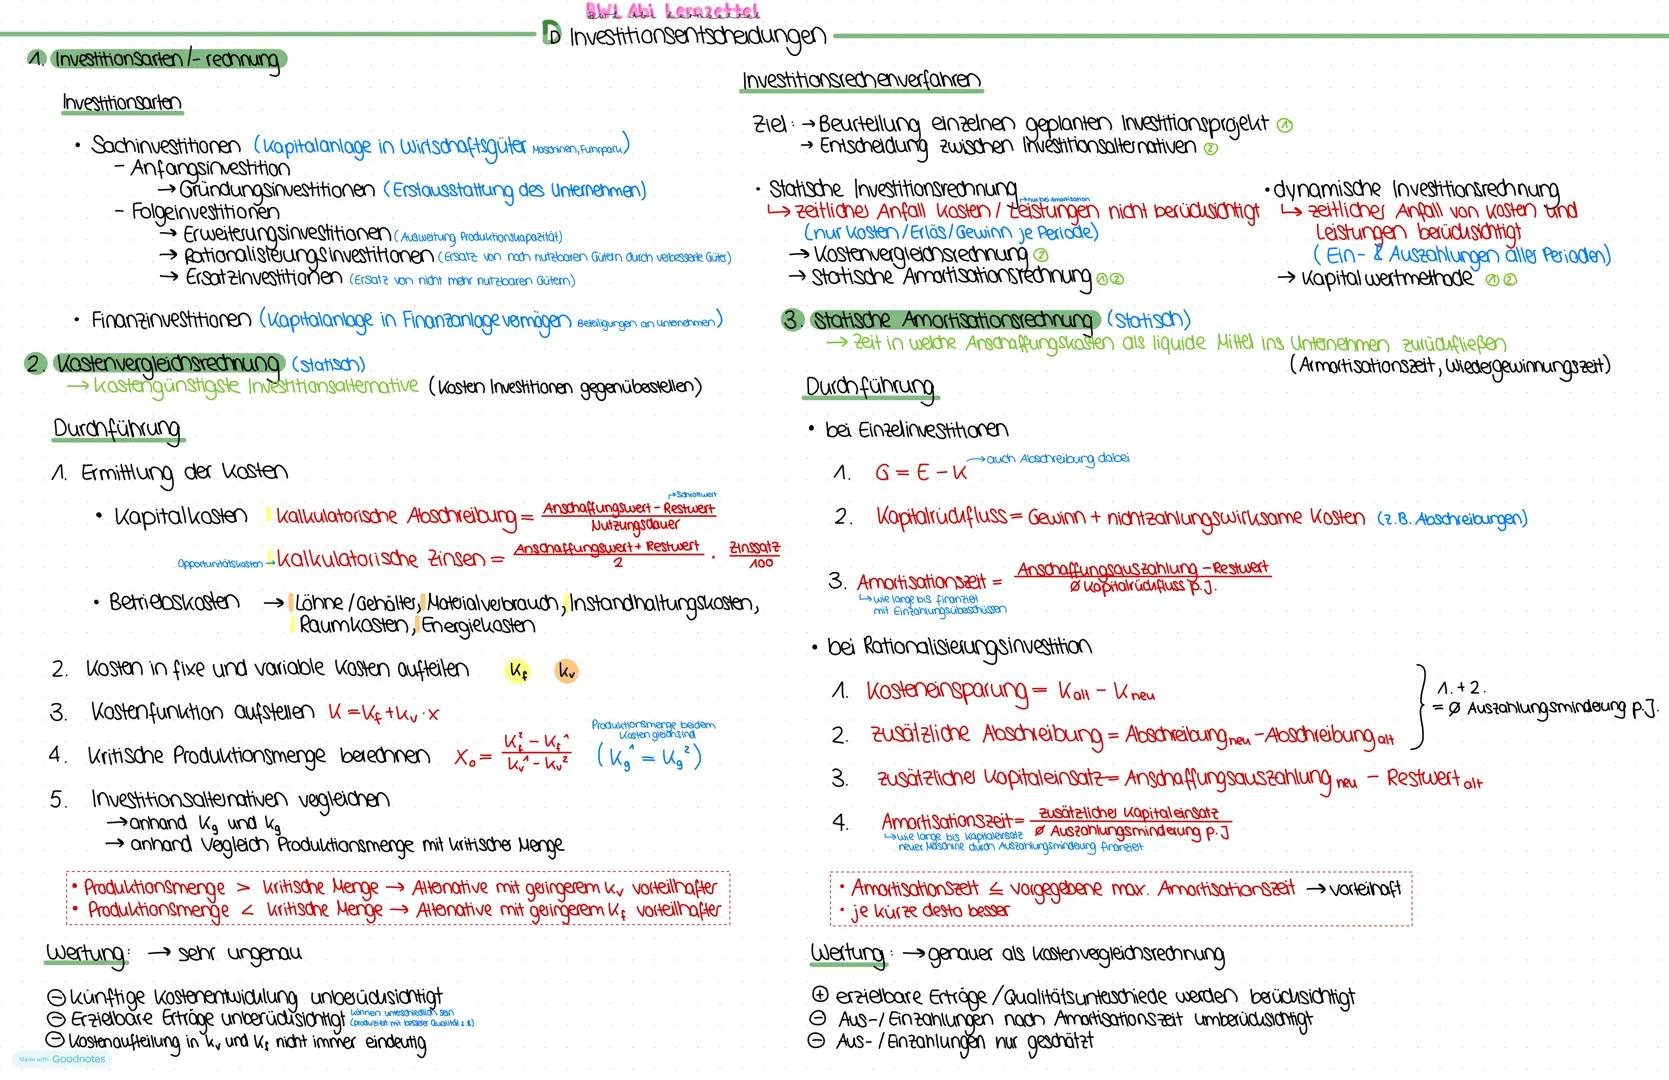 BWL Abi Lernzettel
D Investitionsentscheidungen
1. Investitionsarten/-rechnung
Investitionsarten
• Sachinvestitionen (Kapitalanlage in Wirtschaftsgüter Maschinen, Fuhrpark)
- Anfangsinvestition
→ Gründungsinvestitionen (Erstausstattung des Unternehmen)
- Folgeinvestitionen
→ Erweiterungsinvestitionen (Ausweitung Produktionskapazität)
→ Rationalisierungsinvestitionen (Ersatz von noch nutzbaren Gütern durch verbesserte Güter)
→ Ersatzinvestitionen (Ersatz von nicht mehr nutzbaren Gütern)
• Finanzinvestitionen (Kapitalanlage in Finanzanlagevermögen Beteiligungen an Unternehmen)
2. Kostenvergleichsrechnung (statisch)
→ Kostengünstigste Investitionsalternative (Kosten Investitionen gegenüberstellen)
Durchführung
1. Ermittlung der Kosten
→ Schrottwert
• Kapitalkosten kalkulatorische Abschreibung = Anschaffungswert - Restwert / Nutzungsdauer
Opportunitätskosten → kalkulatorische Zinsen = Anschaffungswert + Restwert / 2 · Zinssatz / 100
• Betriebskosten → Löhne/Gehälter, Materialverbrauch, Instandhaltungskosten,
Raumkosten, Energiekosten
2. Kosten in fixe und variable Kosten aufteilen Kf kv
3. Kostenfunktion aufstellen K = Kf + kv · x
Produktionsmenge bei dem
Kosten gleich sind
4. Kritische Produktionsmenge berechnen X₀ = Kf² - Kf¹ / Kv¹ - Kv² (Kg¹ = Kg²)
5. Investitionsalternativen vergleichen
→ anhand Kg und kg
→ anhand Vergleich Produktionsmenge mit kritischer Menge
• Produktionsmenge > kritische Menge → Alternative mit geringerem kv vorteilhafter
• Produktionsmenge < kritische Menge → Alternative mit geringerem Kf vorteilhafter
Wertung: → sehr ungenau
⊖ künftige Kostenentwicklung unberücksichtigt
⊖ Erzielbare Erträge unberücksichtigt können unterschiedlich sein
(produziert mit besserer Qualität z.B)
⊖ Kostenaufteilung in kv und Kf nicht immer eindeutig
Made with Goodnotes
Investitionsrechenverfahren
Ziel: → Beurteilung einzelnen geplanten Investitionsprojekt ①
→ Entscheidung zwischen Investitionsalternativen ②
• Statische Investitionsrechnung
→ nur bei Amortisation
↳ zeitlicher Anfall Kosten/Leistungen nicht berücksichtigt
(nur Kosten/Erlös/Gewinn je Periode)
→ Kostenvergleichsrechnung ②
→ statische Amortisationsrechnung ①②
• dynamische Investitionsrechnung
↳ zeitlicher Anfall von Kosten und
Leistungen berücksichtigt
(Ein- & Auszahlungen aller Perioden)
→ Kapitalwertmethode ①②
3. Statische Amortisationsrechnung (statisch)
→ Zeit in welche Anschaffungskosten als liquide Mittel ins Unternehmen zurückfließen
(Armortisationszeit, Wiedergewinnungszeit)
Durchführung
• bei Einzelinvestitionen
1. G = E - K → auch Abschreibung dabei
2. Kapitalrückfluss = Gewinn + nichtzahlungswirksame Kosten (z.B. Abschreibungen)
3. Amortisationszeit = Anschaffungsauszahlung - Restwert / ø Kapitalrückfluss p.J.
↳ wie lange bis finanziert
mit Einzahlungsübeschüssen
• bei Rationalisierungsinvestition
1. Kosteneinsparung = Kalt - Kneu
2. zusätzliche Abschreibung = Abschreibung neu - Abschreibung alt
1.+2.
= ø Auszahlungsminderung p.J.
3. zusätzlicher Kapitaleinsatz = Anschaffungsauszahlung neu - Restwert alt
4. Amortisationszeit = zusätzlicher Kapitaleinsatz / ø Auszahlungsminderung p.J
↳ wie lange bis Kapitaleinsatz
neuer Maschine durch Auszahlungsminderung finanziert
• Amortisationszeit ≤ vorgegebene max. Amortisationszeit → vorteilhaft
• je kürze desto besser
Wertung: → genauer als Kostenvergleichsrechnung
⊕ erzielbare Erträge/Qualitätsunterschiede werden berücksichtigt
⊖ Aus-/Einzahlungen nach Amortisationszeit umberücksichtigt
⊖ Aus-/Einzahlungen nur geschätzt